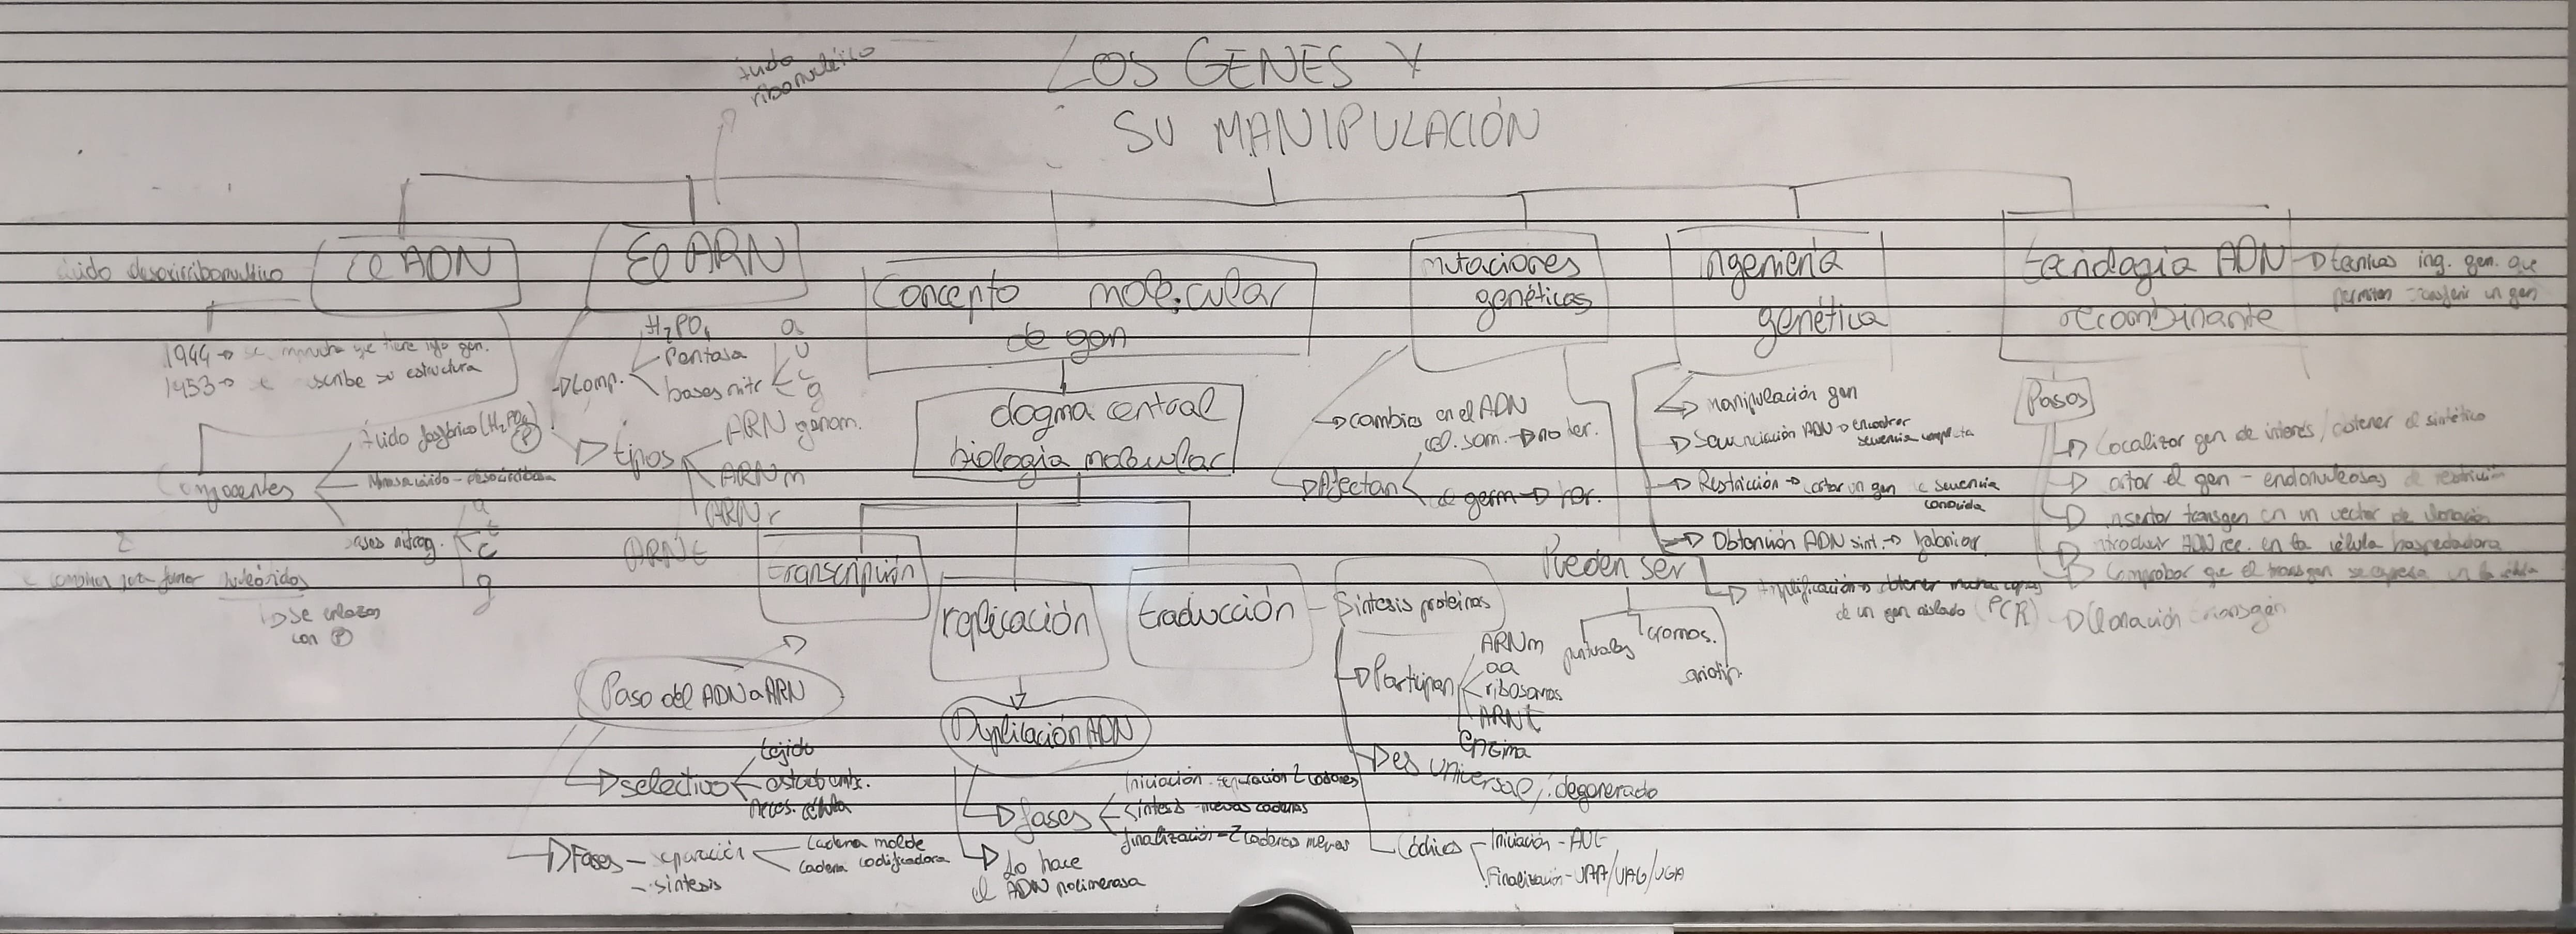 LOS GENES Y
SU MANIPULACIÓN
ribonucléico
El ADN
1944 → se que tiene info gen.
1453 → scribe su estructura
Componentes
ácido fosfórico (H₂PO₄)
P
bases nitrog.
a
t
c
g
nucleótidos
→ Se enlazan
con P
El ARN
→ Comp.
H₂PO₄
Pentosa
bases nitr
a
u
c
g
→ tipos
ARN genom.
ARNm
ARNr
ARNt
Concepto molecular
de gen
dogma central
biología molecular
transcripción
Paso del ADN a ARN
→ selectivo
tejido
neces. célula
→ Fases
separación
cadena molde
cadena codificadora
- síntesis
replicación
Duplicación ADN
→ fases
Iniciación - separación 2 cadenas
síntesis - nuevas cadenas
finalización - 2 cadenas nuevas
→ Lo hace
el ADN polimerasa
traducción
Síntesis proteínas
→ Participan
ARNm
aa
ribosomas
ARNt
Enzima
→ es universal / degenerado
Iniciación - AUG
Finalización - UAA/UAG/UGA
mutaciones
genéticas
→ cambios en el ADN
→ Afectan
cel. som. → no her.
de germ → her.
Pueden ser
puntuales
cromos.
Ingeniería
genética
→ manipulación gen
→ Secuenciación ADN → encontrar
secuencia completa
→ Restricción → cortar un gen secuencia
conocida
→ Obtención ADN sint. → fabricar
→ Amplificación → obtener muchas copias
de un gen aislado (PCR)
tecnología ADN
recombinante
→ técnicas ing. gen. que
permiten transferir un gen
Pasos
→ Localizar gen de interés / obtener el sintético
→ cortar el gen - endonucleasas de restricción
→ insertar transgen en un vector de clonación
→ introducir ADN rec. en la célula hospedadora
→ Comprobar que el transgen se expresa en la célula
→ Clonación transgén